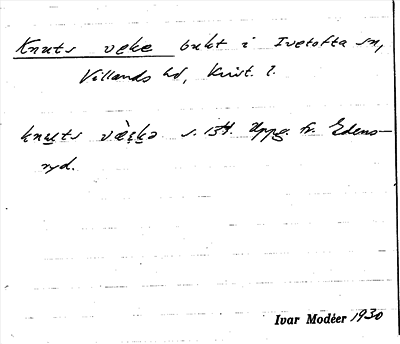 Knuts veke bukt i Ivetofta sn,
Villands hd, Krist. l.
knuts vèkə s. 154. Uppg. fr. Edens-
ryd.
Ivar Modéer 1930